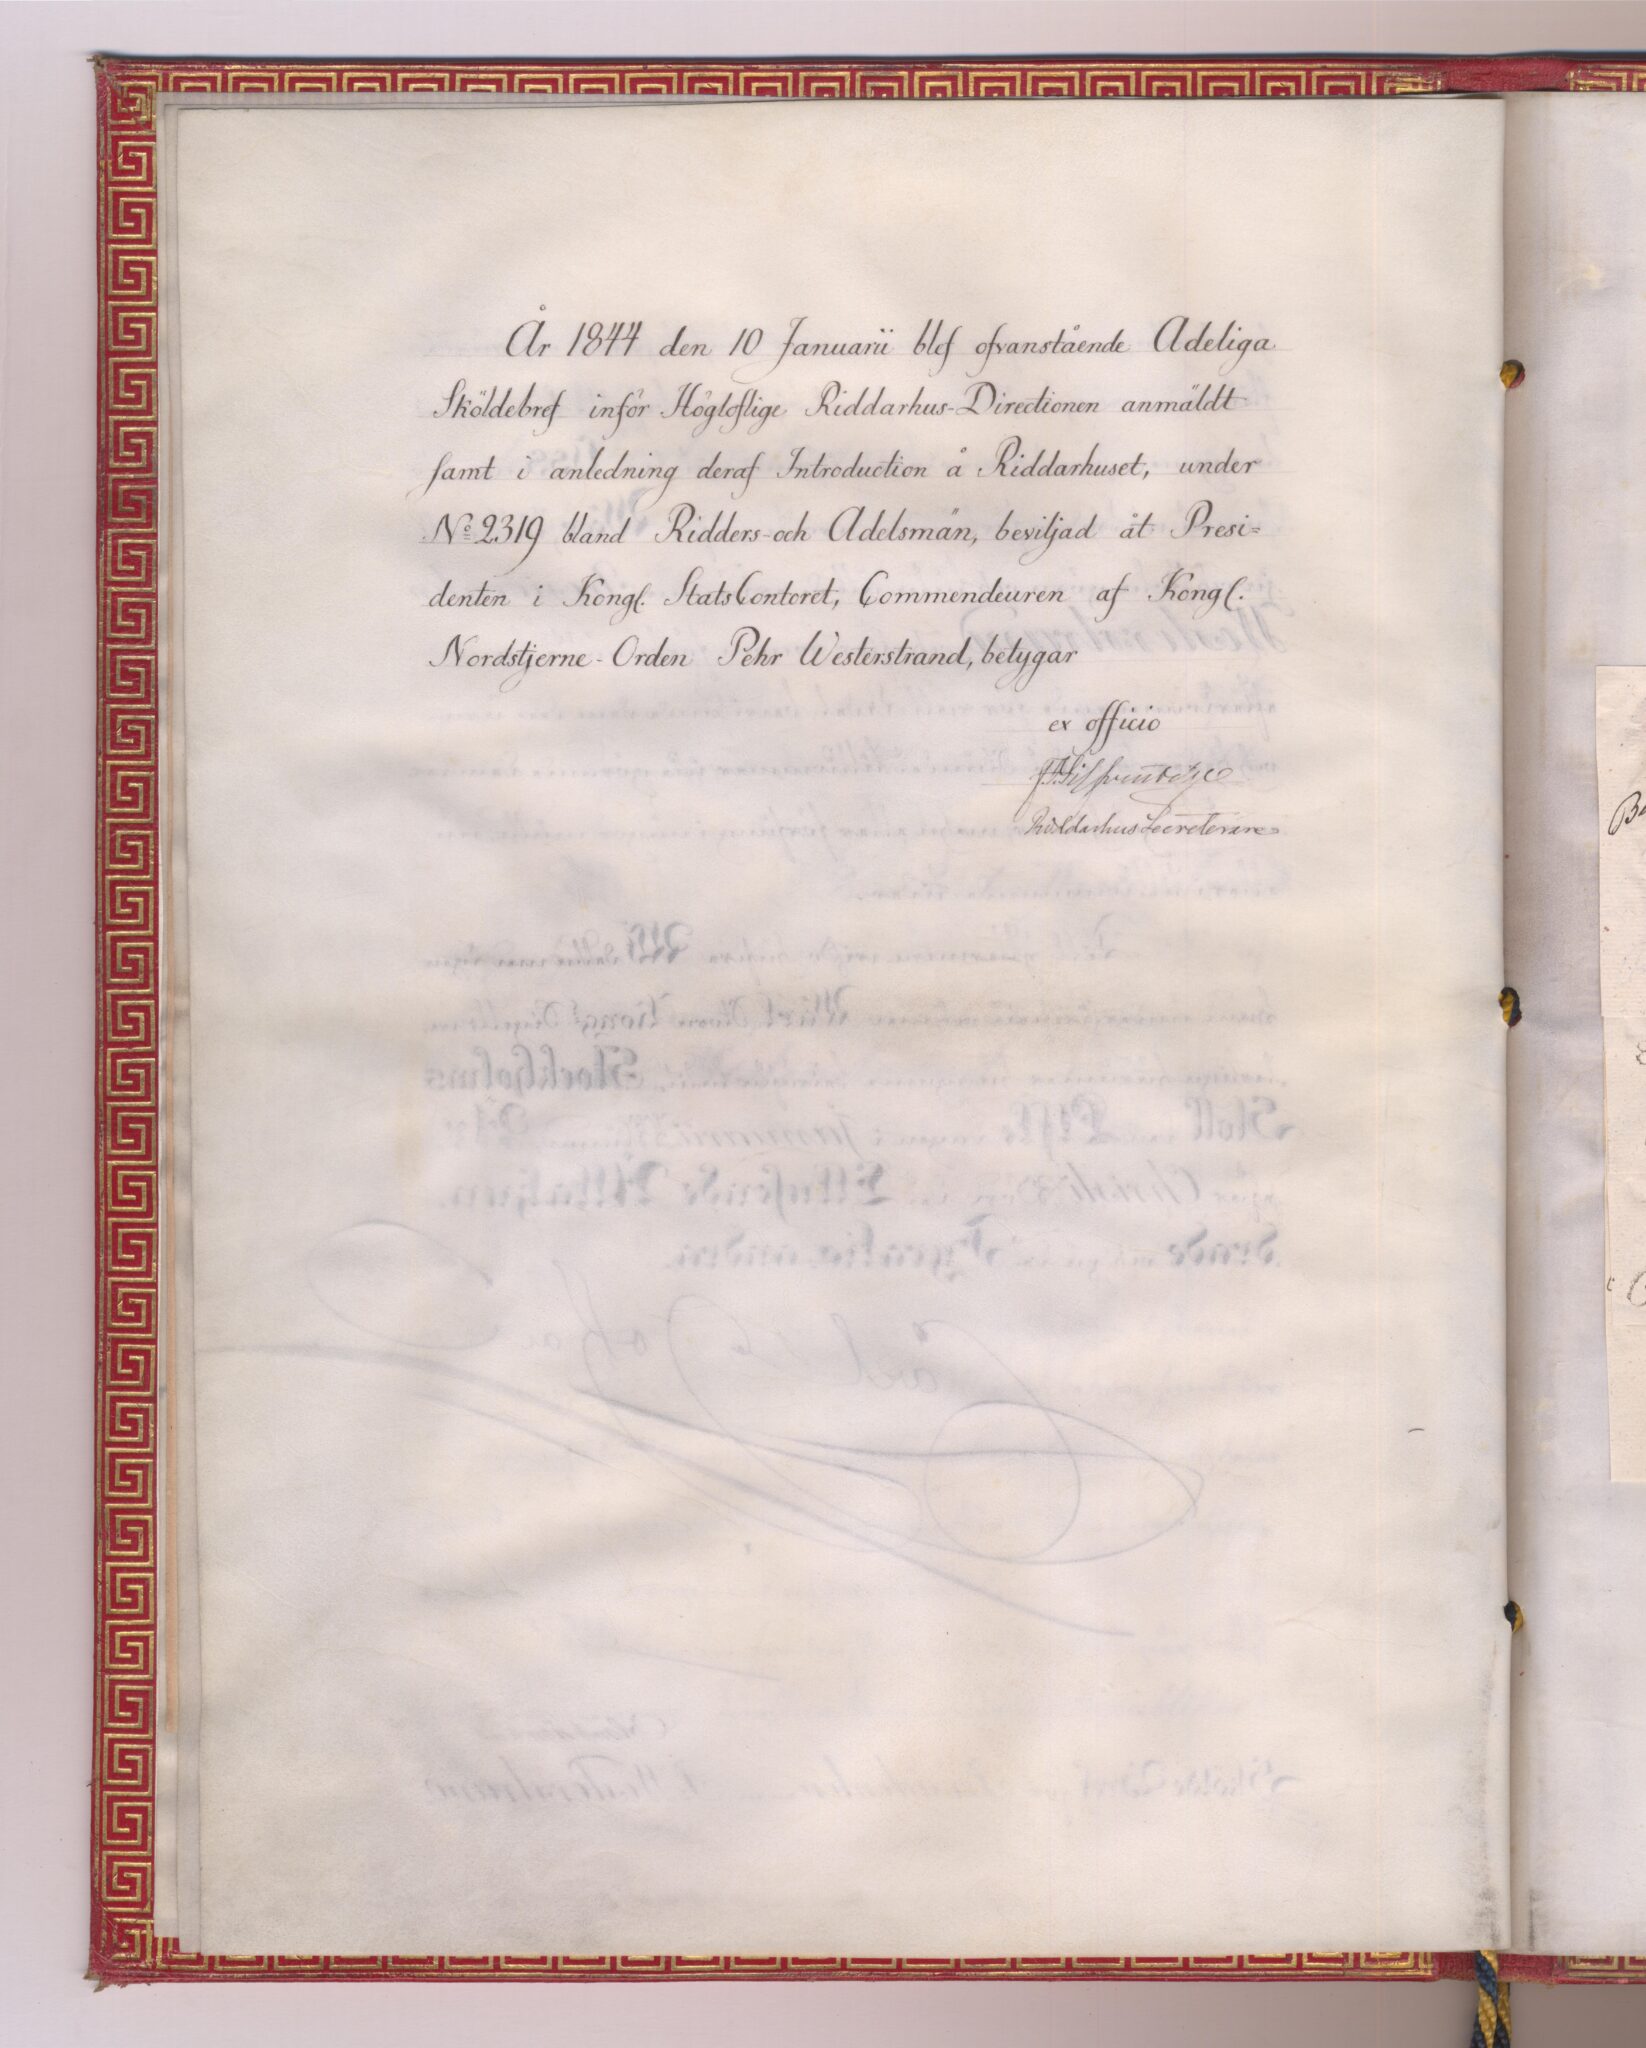 År 1844 den 10 Januarii blef ofvanstående Adeliga
Sköldebref inför Högloflige Riddarhus-Directionen anmäldt
samt i anledning deraf Introduction å Riddarhuset, under
No 2319 bland Ridders-och Adelsmän, beviljad åt Presi=
denten i Kongl. StatsContoret, Commendeuren af Kongl.
Nordstjerne-Orden Pehr Westerstrand, betygar
ex officio
RiddarhusSecreterare